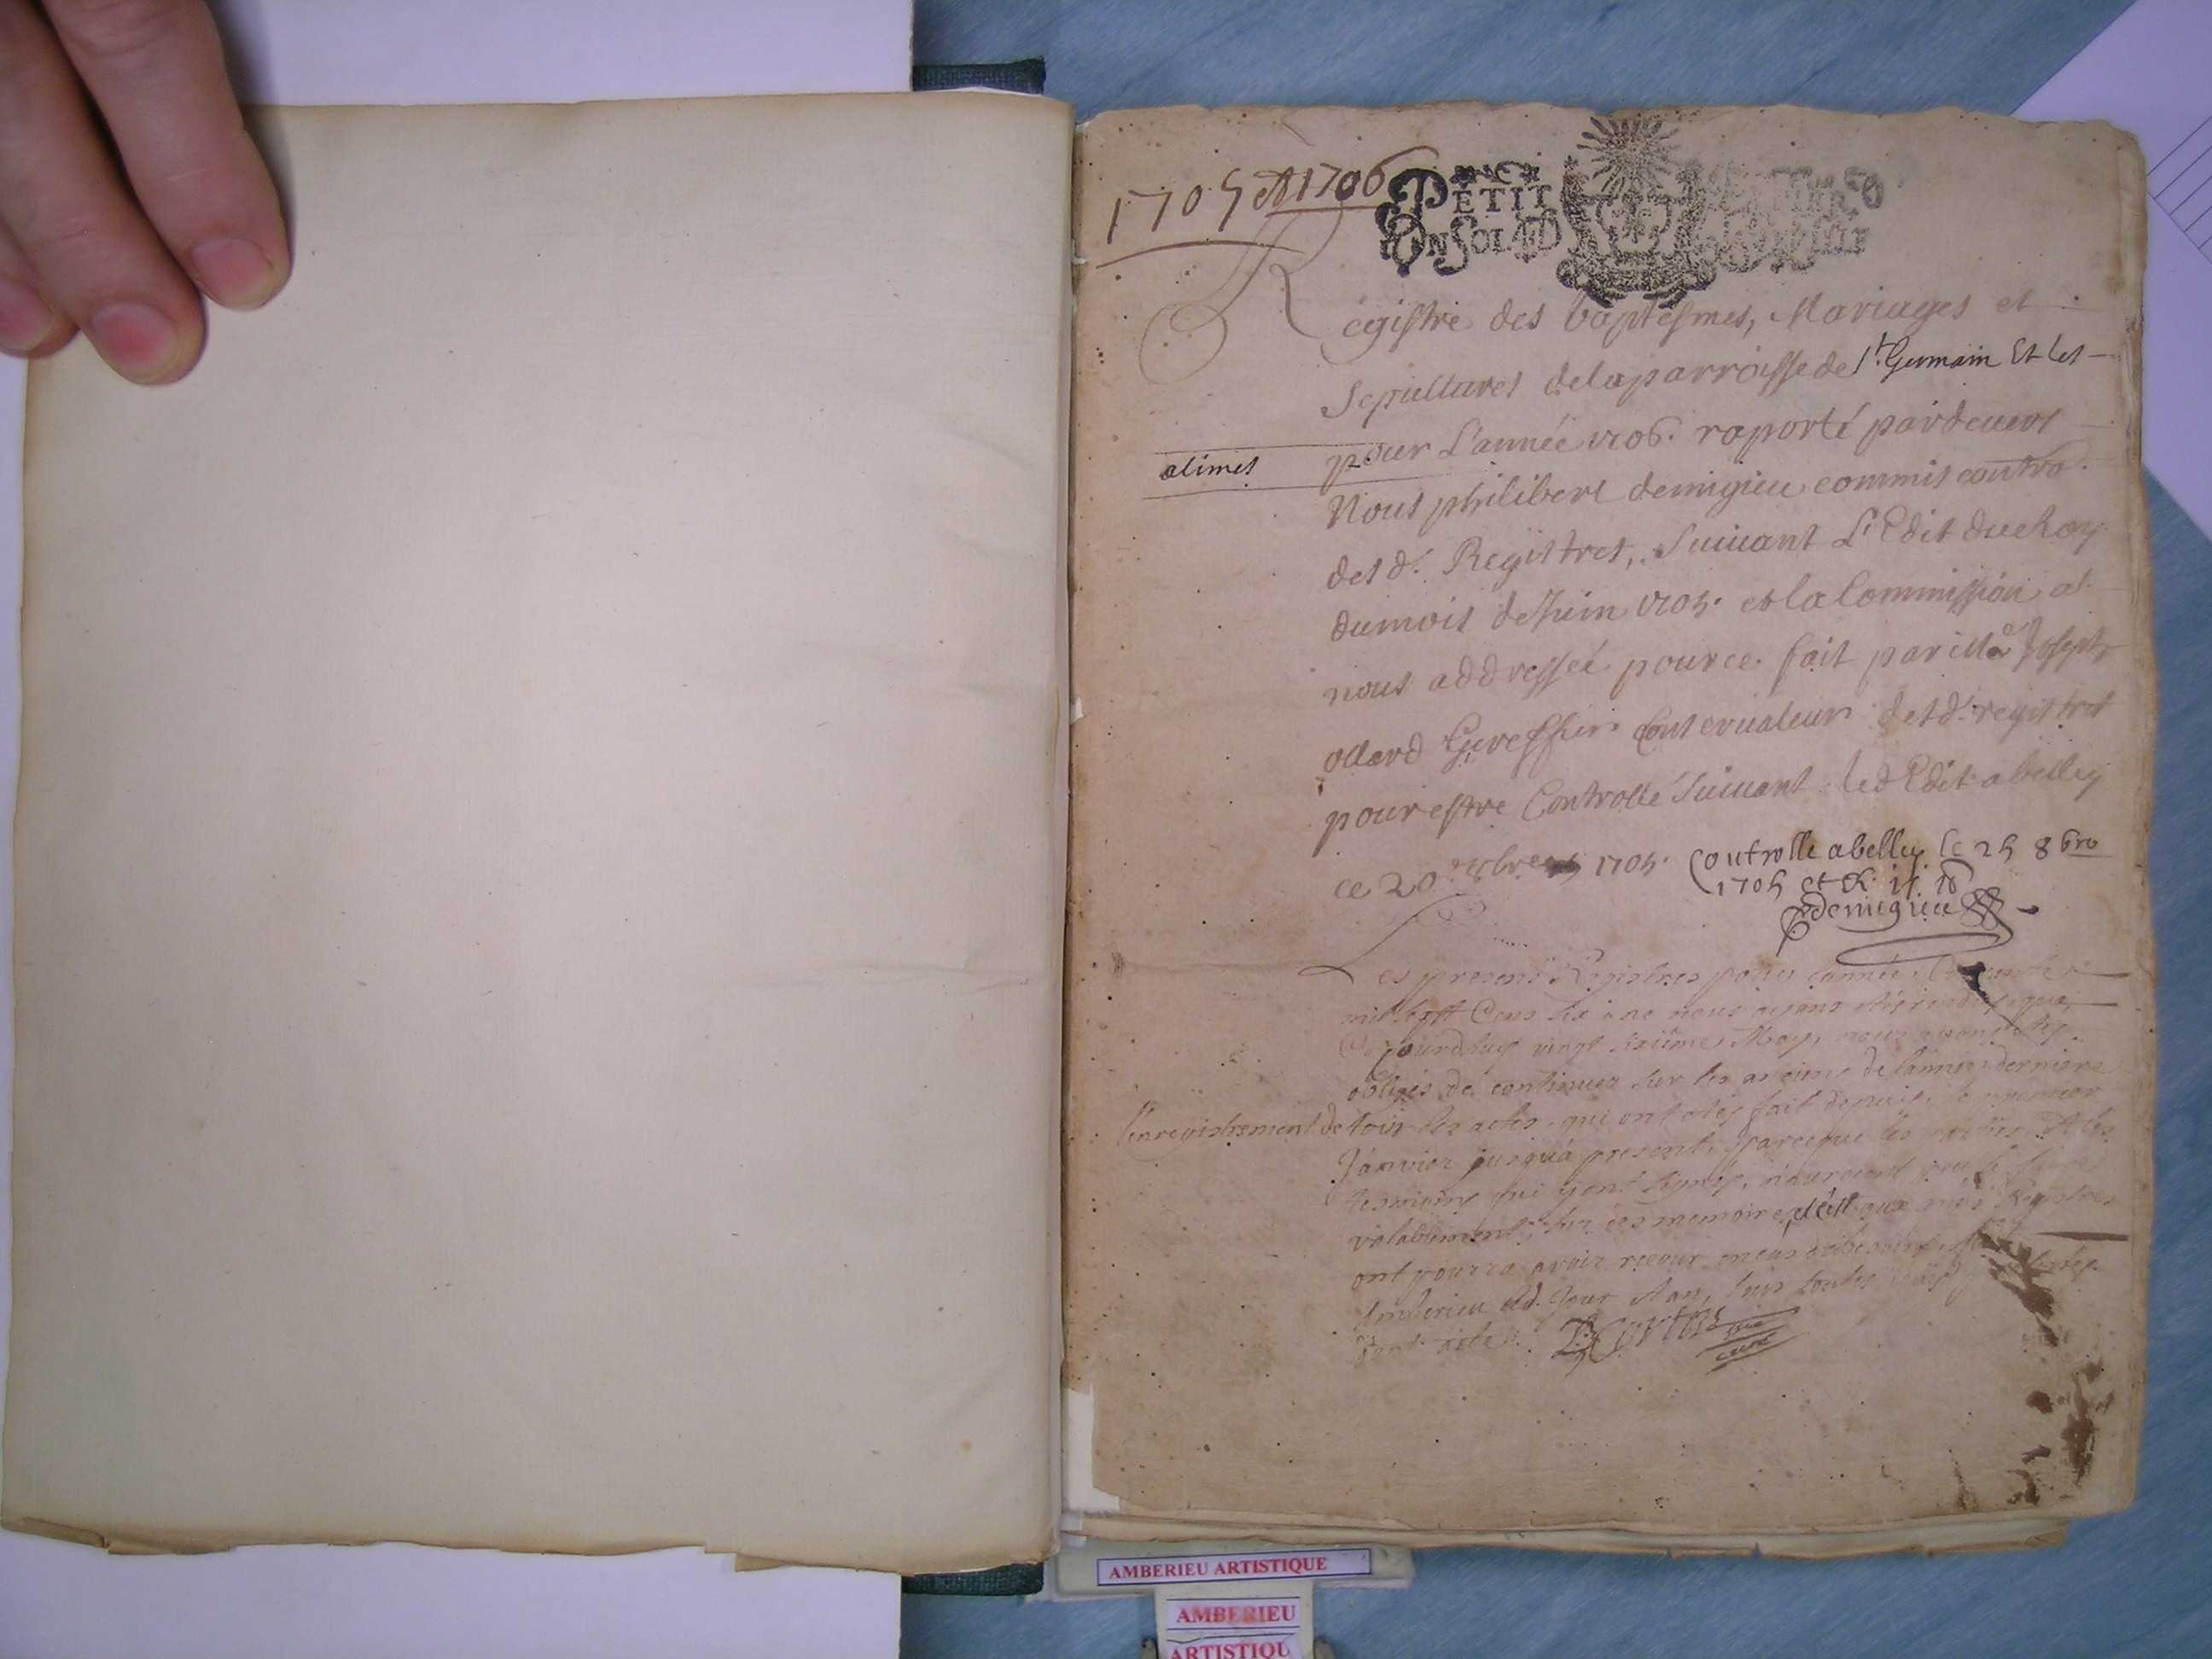 1705 et 1706
PETIT
ON SOL 4D
Registre des baptesmes, Mariages et
Sepultures de la parroisse de St. Germain Et les
alimes
pour L'année 1706. raporté pardeuers
Nous philibert demigieu commis contro.
des d. Registres, Suiuant L'Edit du Roy
du mois de Juin 1705. et la Commission a
nous addressée pour ce fait par Me Joseph
ollard Greffier Conseruateur desd. registres
pour estre Controllé Suiuant led Edit a belley
ce 20 1705.
Controlle a belley le 25 8bre
1705 et R.
Demigieu
Les presens Registres pour l'année
mil sept Cens six ne nous ayans estés rendus que
ce jourdhuy vingt sixième May, nous avons estés
obligés de continuer sur les anciens de l'année derniere
l'enregistrement de tous les actes qui ont estés fait depuis le premier
Janvier jusqu'a present, parceque les parties et les
tesmoins qui y ont signés, n'auroient peu
valablement, sur des memoires, c'est que mes Registres
ont pourra avoir recour en cas de besoin,
Amberieu led. Jour et an,
curé
AMBERIEU ARTISTIQUE
AMBERIEU
ARTISTIQU